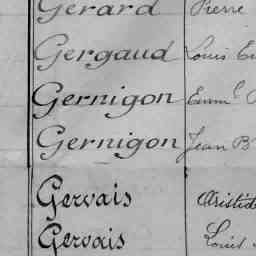 Gérard Pierre
Gergaud Louis
Gernigon Emm.l
Gernigon Jean B
Gervais Aristid
Gervais Louis